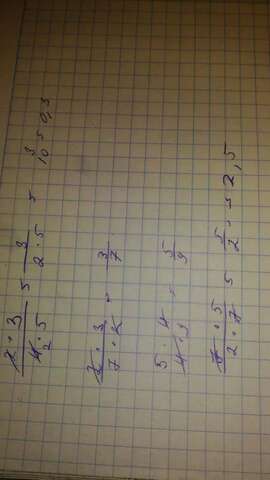 2·3/4·5 = 3/2·5 = 3/10 = 0,3
2·3/7·2 = 3/7
5·4/4·9 = 5/9
7·5/2·7 = 5/2 = 2,5